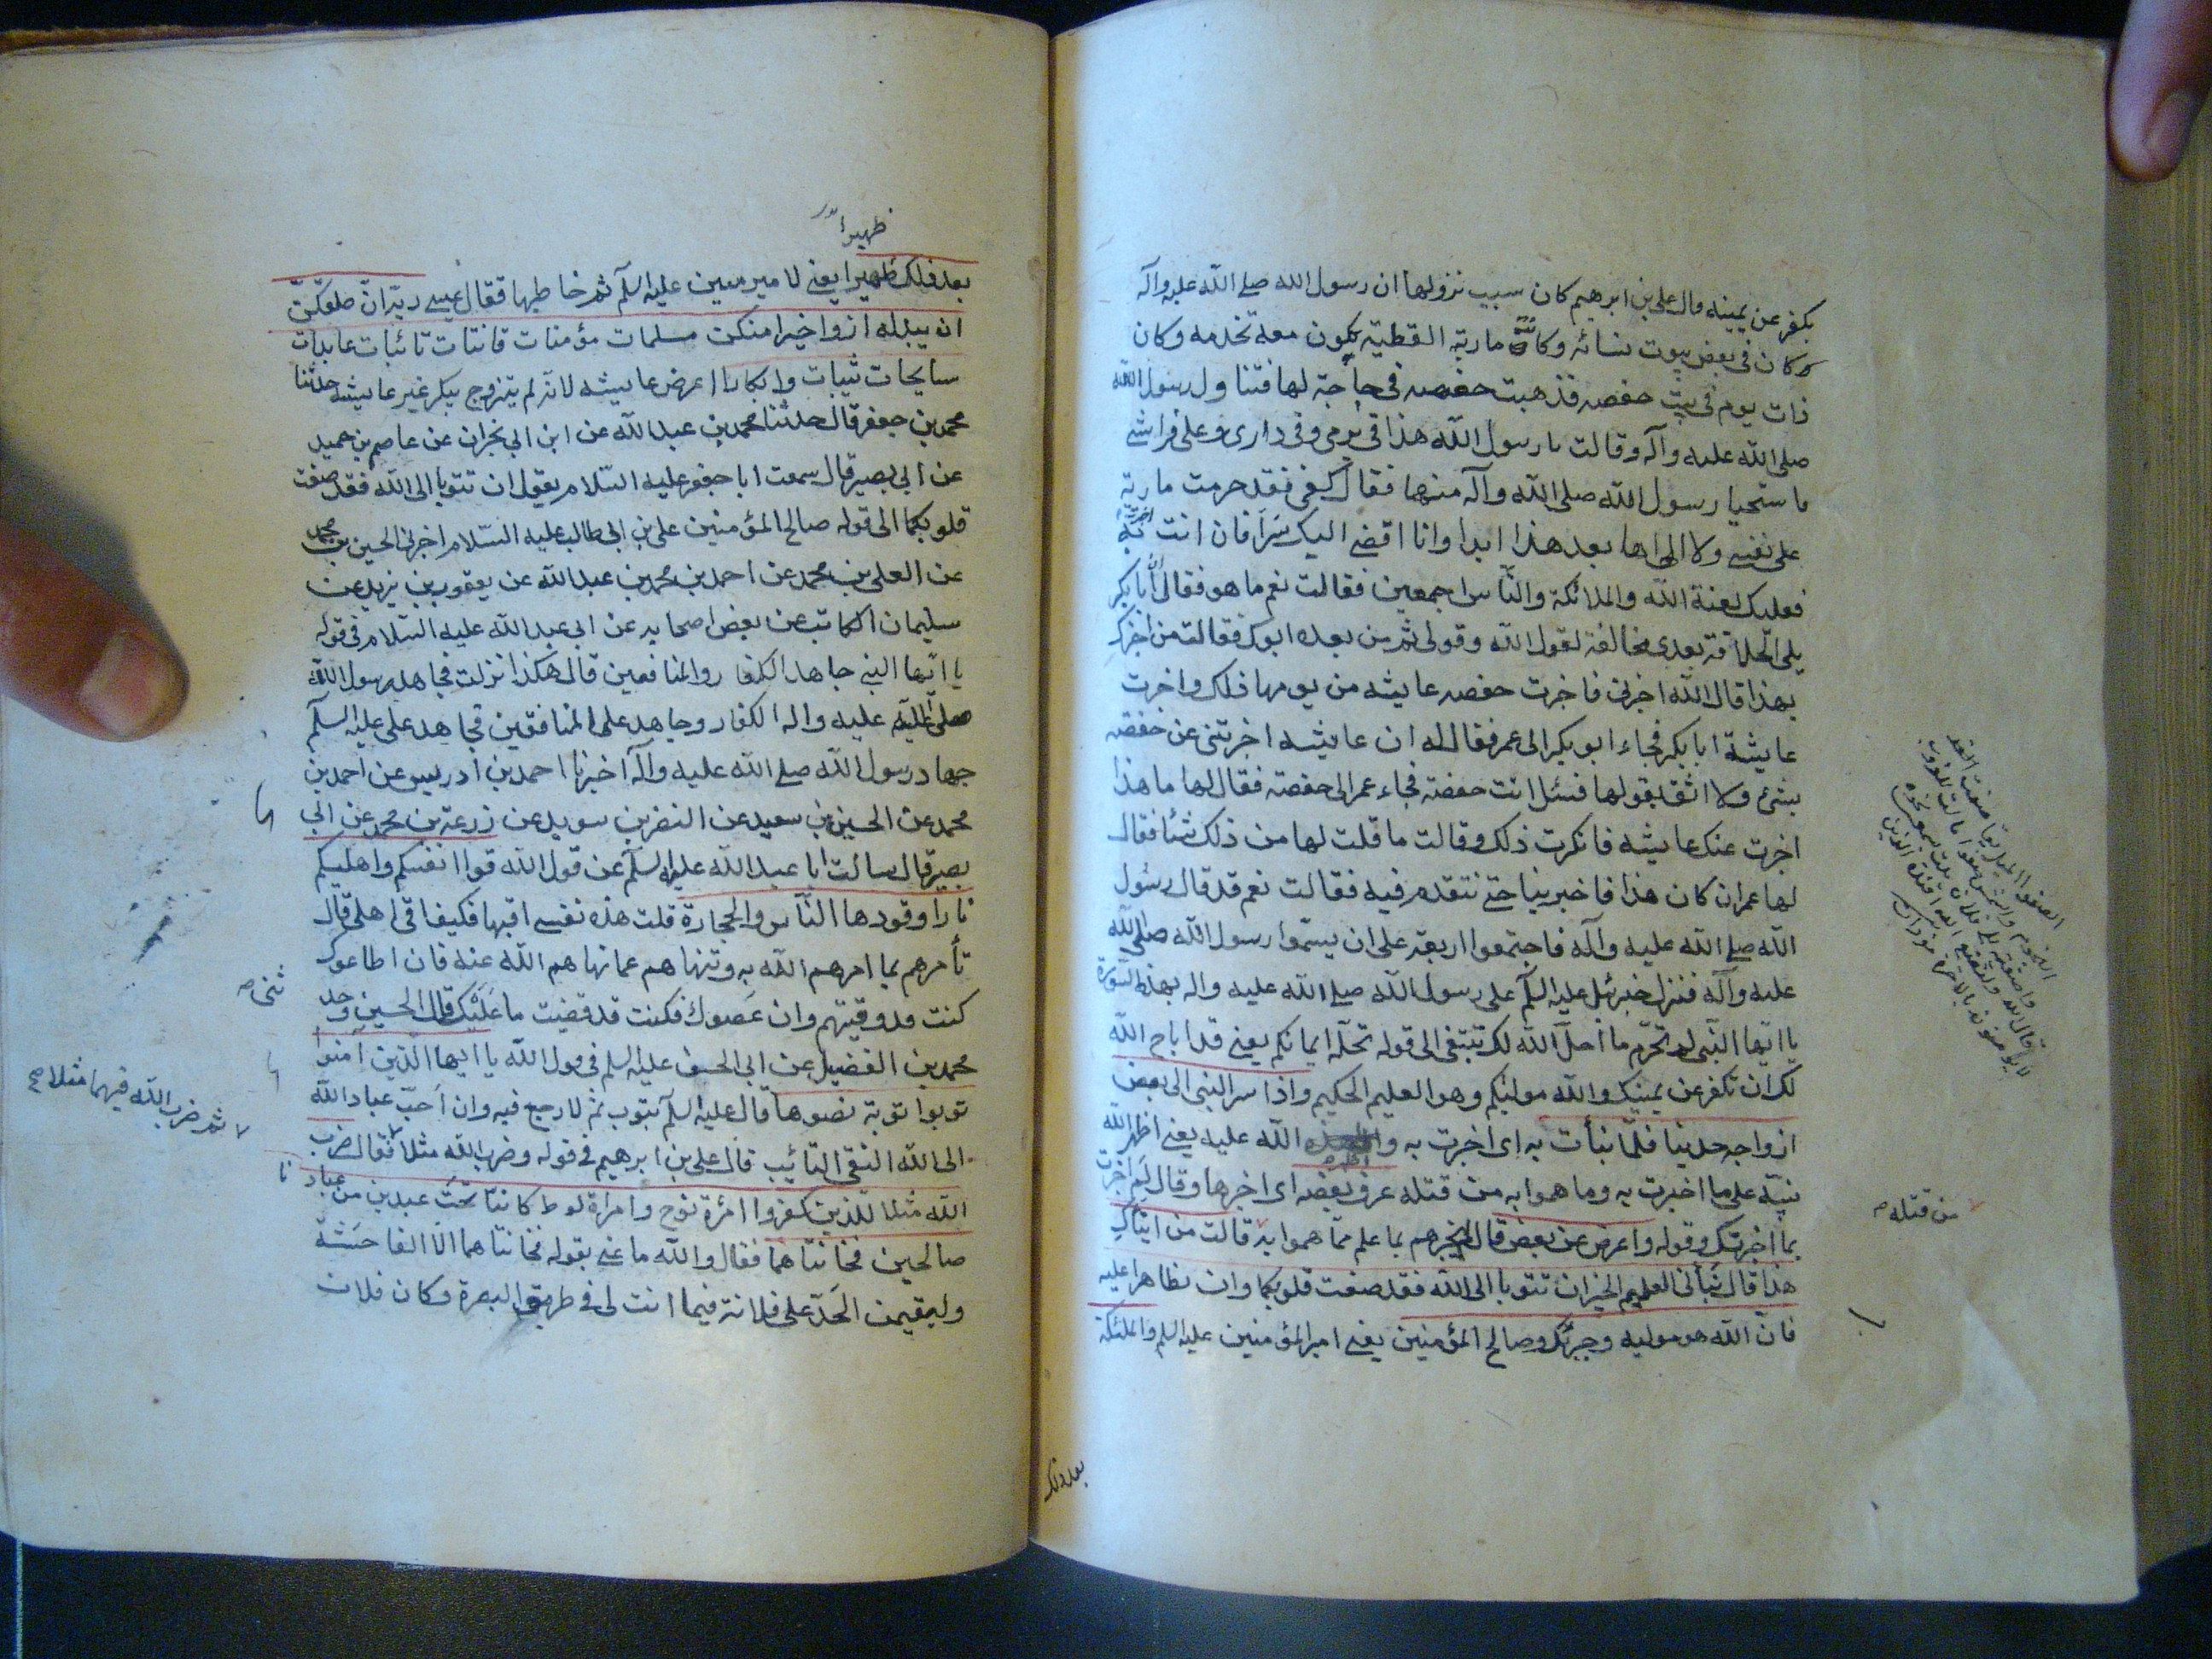 يكفر عن يمينه قال علي بن ابرهيم كان سبب نزولها ان رسول الله صلى الله عليه وآله
كان في بعض بيوت نسائه وكانت مارية القطبية يكون معه تخدمه وكان
ذات يوم في بيت حفصه فذهبت حفصه في حاجة لها فتناول رسول الله
صلى الله عليه وآله وقالت يا رسول الله هذا في يومي وفي داري وعلى فراشي
ما ستحيا رسول الله صلى الله وآله منها فقال كفى فقد حرمت مارية
على نفسي ولا الى اها بعد هذا ابدا وانا اقضي اليك سرا فان انت اخبرت به
فعليك لعنة الله والملائكة والناس اجمعين فقالت نعم ما هو فقال ان ابا بكر
يلي الخلافة بعدي مخالفة لقول الله وقولي ثم من بعده ابوك فقالت من اخبرك
بهذا قال الله اخبرني فاخبرت حفصه عايشه من يومها ذلك واخبرت
عايشة ابا بكر فجاء ابو بكر الى عمر فقال له ان عايشه اخبرتني عن حفصه
بشئ ولا اثق بقولها فسئل انت حفصة فجاء عمر الى حفصة فقال لها ما هذا
اخبرت عنك عايشه فانكرت ذلك وقالت ما قلت لها من ذلك شئا فقال
لها عمر ان كان هذا فاخبرينا حتى نتقدم فيه فقالت نعم قد قال رسول
الله صلى الله عليه وآله فاجتمعوا اربعة على ان يسموا رسول الله صلى الله
عليه وآله فنزل جبرئيل عليه السلم على رسول الله صلى الله عليه واله بهذه السورة
يا ايها النبي لم تحرم ما احل الله لك تبتغى الى قوله تحلة ايمانكم يعني قد اباح الله
لك ان تكفر عن يمينك والله موليكم وهو العليم الحكيم واذا سر النبي الى بعض
ازواجه حديثا فلما نبأت به اى اخبرت به واظهره الله عليه يعني اظهر الله
نبيه على ما اخبرت به وما هموا به من قتله عرف بعضه اى اخبرها وقال لم اخبرت
بما اخبرتك وقوله واعرض عن بعض قال لم يخبرهم بما علم مما هموا به قالت من انباك
هذا قال نبأني العليم الخبير ان تتوبا الى الله فقد صغت قلوبكما وان تظاهرا عليه
فان الله هو موليه وجبرئيل وصالح المؤمنين يعني امير المؤمنين عليه السلم والملئكة
من قتله صح
بعد ذلك
ظهيرا
بعد ذلك ظهيرا يعني لامير مؤمنين عليه السلم ثم خاطبها فقال عيسى ربه ان طلقكن
ان يبدله ازواجا خيرا منكن مسلمات مؤمنات قانتات تائبات عابدات
سايحات ثيبات وابكارا اعرض عايشه لانه لم يتزوج ببكر غير عايشه حدثنا
محمد بن جعفر قال حدثنا محمد بن عبد الله عن ابن ابي نجران عن عاصم بن حميد
عن ابي بصير قال سمعت ابا جعفر عليه السلام يقول ان تتوبا الى الله فقد صغت
قلوبكما الى قوله صالح المؤمنين علي بن ابي طالب عليه السلام اخبرني الحسين بن محمد
عن المعلى بن محمد عن احمد بن محمد بن عبد الله عن يعقوب بن يزيد عن
سليمان الكاتب عن بعض اصحابه عن ابي عبد الله عليه السلام في قوله
يا ايها النبي جاهد الكفار والمنافقين قال هكذا نزلت فجاهد رسول الله
صلى الله عليه واله الكفار وجاهد على المنافقين فجاهد على عليه السلم
جهاد رسول الله صلى الله عليه وآله اخبرنا احمد بن ادريس عن احمد بن
محمد عن الحسين بن سعيد عن النضر بن سويد عن زرعة بن محمد عن ابي
بصير قال سالت ابا عبد الله عليه السلم عن قول الله قوا انفسكم واهليكم
نارا وقودها الناس والحجارة قلت هذه نفسي اقيها فكيف اقي اهلي قال
تأمرهم بما امرهم الله به وتنهاهم عما نهاهم الله عنه فان اطاعوك
كنت قد وقيتهم وان عصوك فكنت قد قضيت ما عليك قال الحسين وحد
ثنى صح
محمد بن الفضيل عن ابي الحسن عليه السلم في قول الله يا ايها الذين آمنوا
توبوا توبة نصوحا قال عليه السلم يتوب ثم لا رجع فيه وان احب عباد الله
الى الله التقي التائب قال علي بن ابرهيم في قوله وضرب الله مثلا فقال ضرب
ثم ضرب الله فيهما مثلا صح
الله مثلا للذين كفروا امرأة نوح وامراة لوط كانتا تحت عبدين من عبادنا
صالحين فخانتاهما فقال والله ما عنى بقوله فخانتاهما الا الفاحشة
وليقيمن الحد على فلانة فيما اتت لى في طريق البصرة وكان فلان